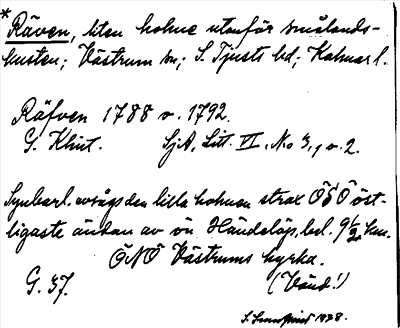 * Räven, liten holme utanför smålands-
kusten; Västrum sn; S. Tjusts hd; Kalmar l.
Räfven 1788 o. 1792.
G. Klint. SjA, Litt. VI, No 3, 1 o. 2.
Synbarl. avsågs den lilla holmen strax ÖSÖ öst-
ligaste ändan av ön Händelöp, bel. 9½ km.
ÖNÖ Västrums kyrka.
G. 37. (Vänd!)
1928.